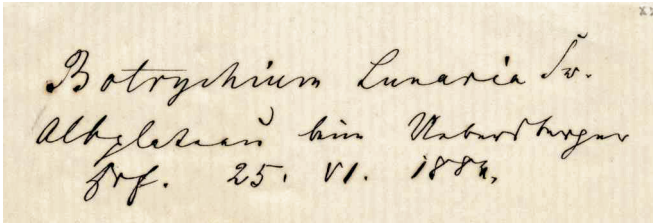 Botrychium Lunaria Sw.
Albplateau beim Uebersberger
Hof. 25. VI. 188